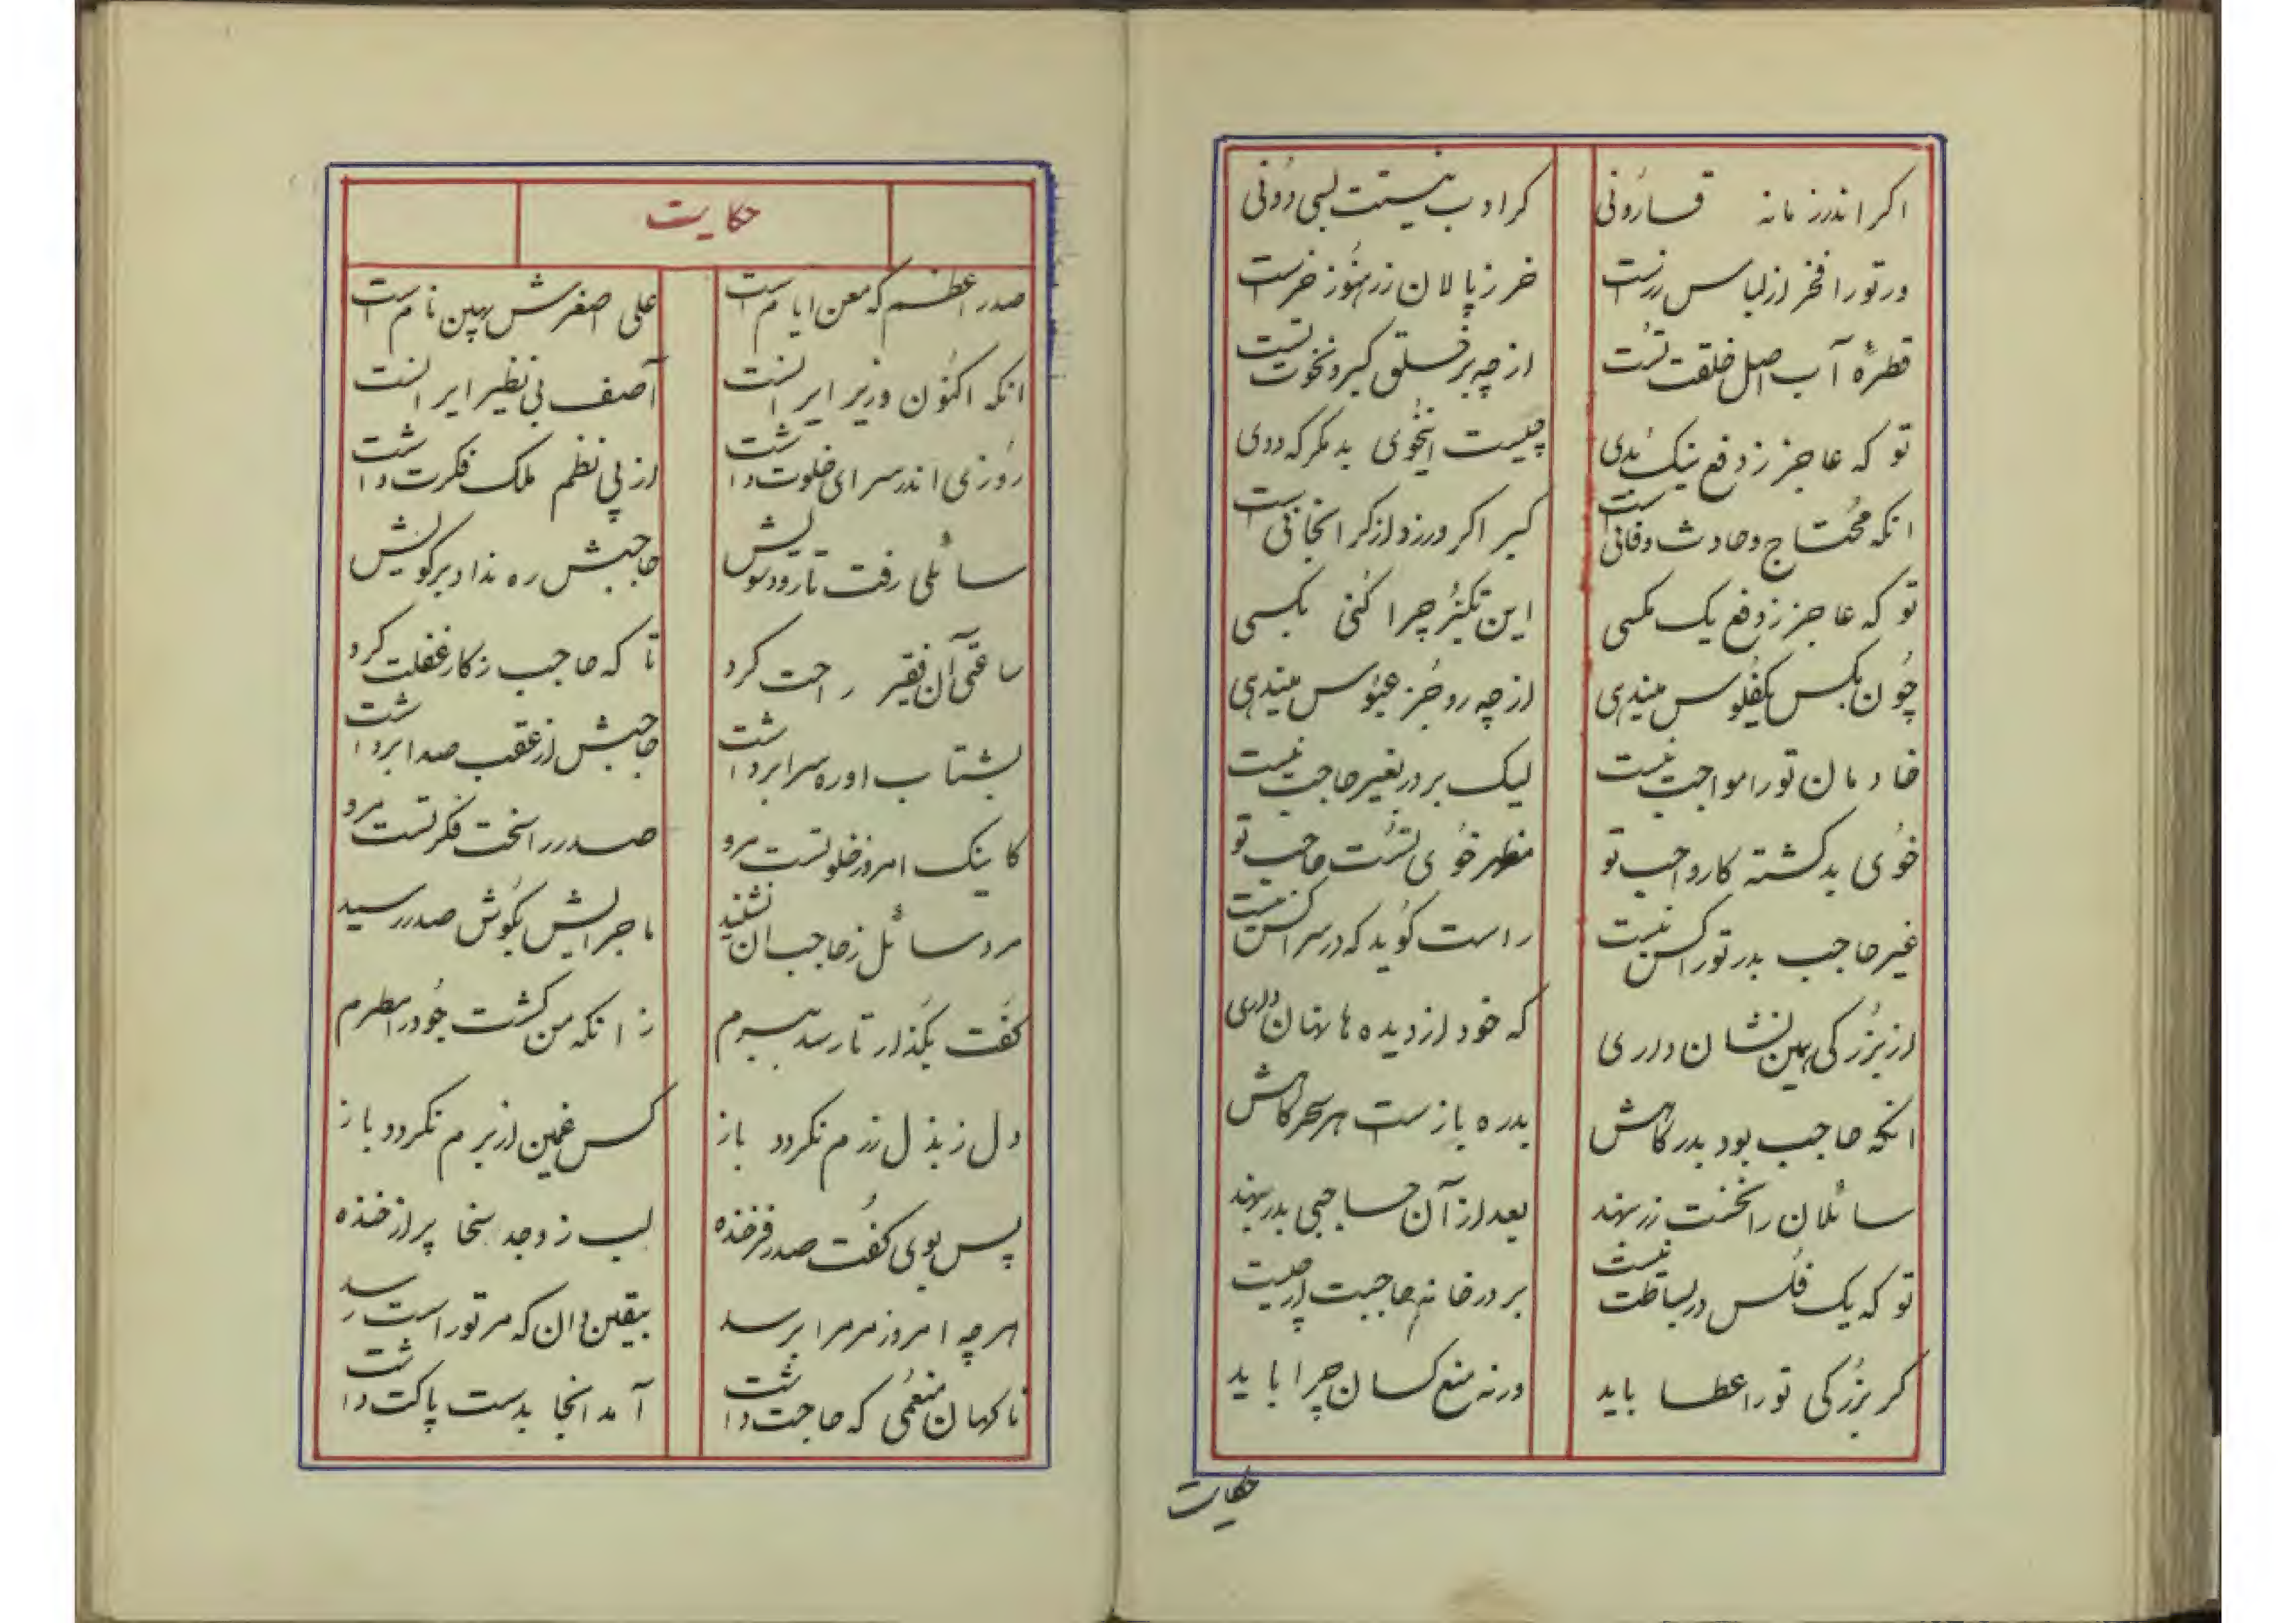 اگر اندر زمانه قارونی
گر ادب نیستت بسی دونی
ور تو را فخر از لباس زرست
خر ز پالان زر هنوز خرست
قطرهٔ آب اصل خلقت تست
از چه بر خلق کبر و نخوت تست
تو که عاجز ز دفع نیک بدی
چیست اینخوی بد مگر که ددی
انکه محتاج و حادث و فانی است
کبر اگر ورزد از گرانجانی است
تو که عاجز ز دفع یک مگسی
این تکبر چرا کنی بکسی
چون بکس یکفلوس میندهی
از چه رو جز عبوس میندهی
خادمان تو را مواجب نیست
لیک بر در بغیر حاجب نیست
خوی بد گشته کار واجب تو
مظهر خوی تست حاجب تو
غیر حاجب بدر تو را کس نیست
راست گوید که در سرا کس نیست
از بزرگی همین نشان داری
که خود از دیده ها نهان داری
انکه حاجب بود بدرگاهش
بدره بازست هر سحرگاهش
سائلان را نخست زر بهند
بعد از آن حاجبی بدر بهند
تو که یک فلس در بساطت نیست
بر در خانه حاجبت از چیست
گر بزرگی تو را عطا باید
ورنه منع کسان چرا باید
حکایت
حکایت
صدر اعظم که معن ایام است
علی اصغرش بهین نام است
انکه اکنون وزیر ایرانست
آصف بی نظیر ایرانست
روزی اندر سرای خلوت داشت
از پی نظم ملک فکرت داشت
سائلی رفت تا رود سویش
حاجبش ره نداد بر کویش
ساعتی آن فقیر راحت کرد
تا که حاجب ز کار غفلت کرد
بشتاب او ره سرا برداشت
حاجبش از عقب صدا برداشت
کاینک امروز خلوتست مرو
صدر را سخت فکرتست مرو
مرد سائل ز حاجب ان نشنید
ماجرایش بگوش صدر رسید
گفت بگذار تا رسد ببرم
زانکه من کشت جود را مطرم
دل ز بذل زرم نگردد باز
کس غمین از برم نگردد باز
پس بوی گفت صدر فرخنده
لب ز وجد سخا پر از خنده
هر چه امروز مر مرا برسد
بیقین دان که مر تو راست رسد
ناگهان منعمی که حاجت داشت
آمد انجا بدست پاکت داشت